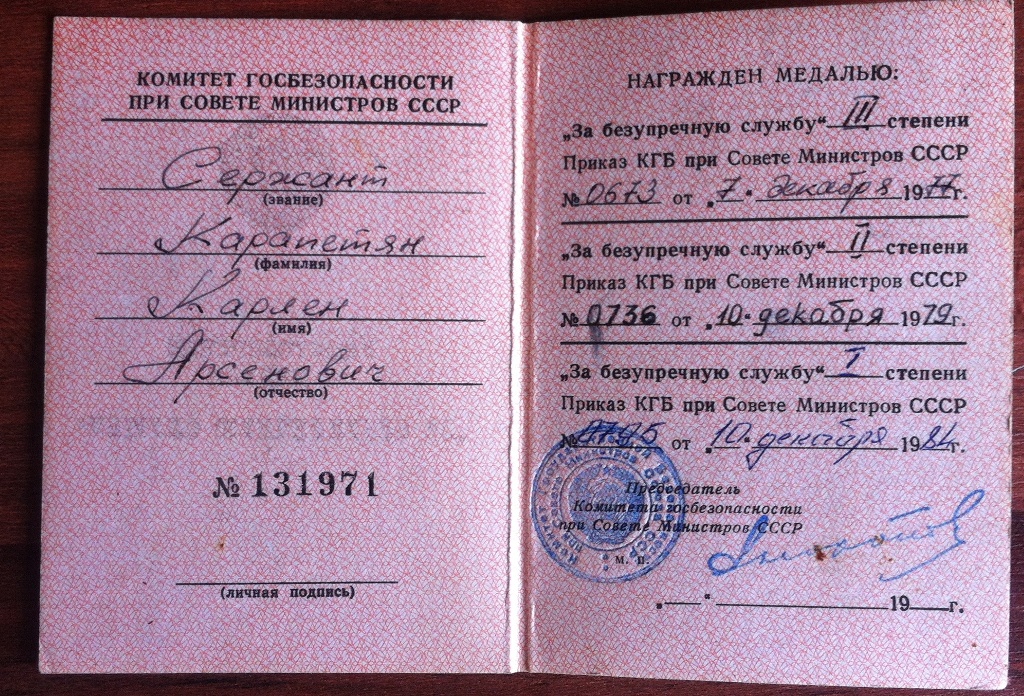 КОМИТЕТ ГОСБЕЗОПАСНОСТИ
ПРИ СОВЕТЕ МИНИСТРОВ СССР
Сержант
(звание)
Карапетян
(фамилия)
Карлен
(имя)
Арсенович
(отчество)
№ 131971
(личная подпись)
НАГРАЖДЕН МЕДАЛЬЮ:
„За безупречную службу“ III степени
Приказ КГБ при Совете Министров СССР
№ 0673 от „7“ декабря 1977г.
„За безупречную службу“ II степени
Приказ КГБ при Совете Министров СССР
№ 0736 от „10“ декабря 1979г.
„За безупречную службу“ I степени
Приказ КГБ при Совете Министров СССР
№ от „10“ декабря 1984г.
Председатель
Комитета госбезопасности
при Совете Министров СССР
м. п.
„ “ 19 г.